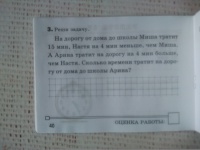 3. Реши задачу.
На дорогу от дома до школы Миша тратит
15 мин, Настя на 4 мин меньше, чем Миша.
А Арина тратит на дорогу на 4 мин больше,
чем Настя. Сколько времени тратит на доро-
гу от дома до школы Арина?
ОЦЕНКА РАБОТЫ
40